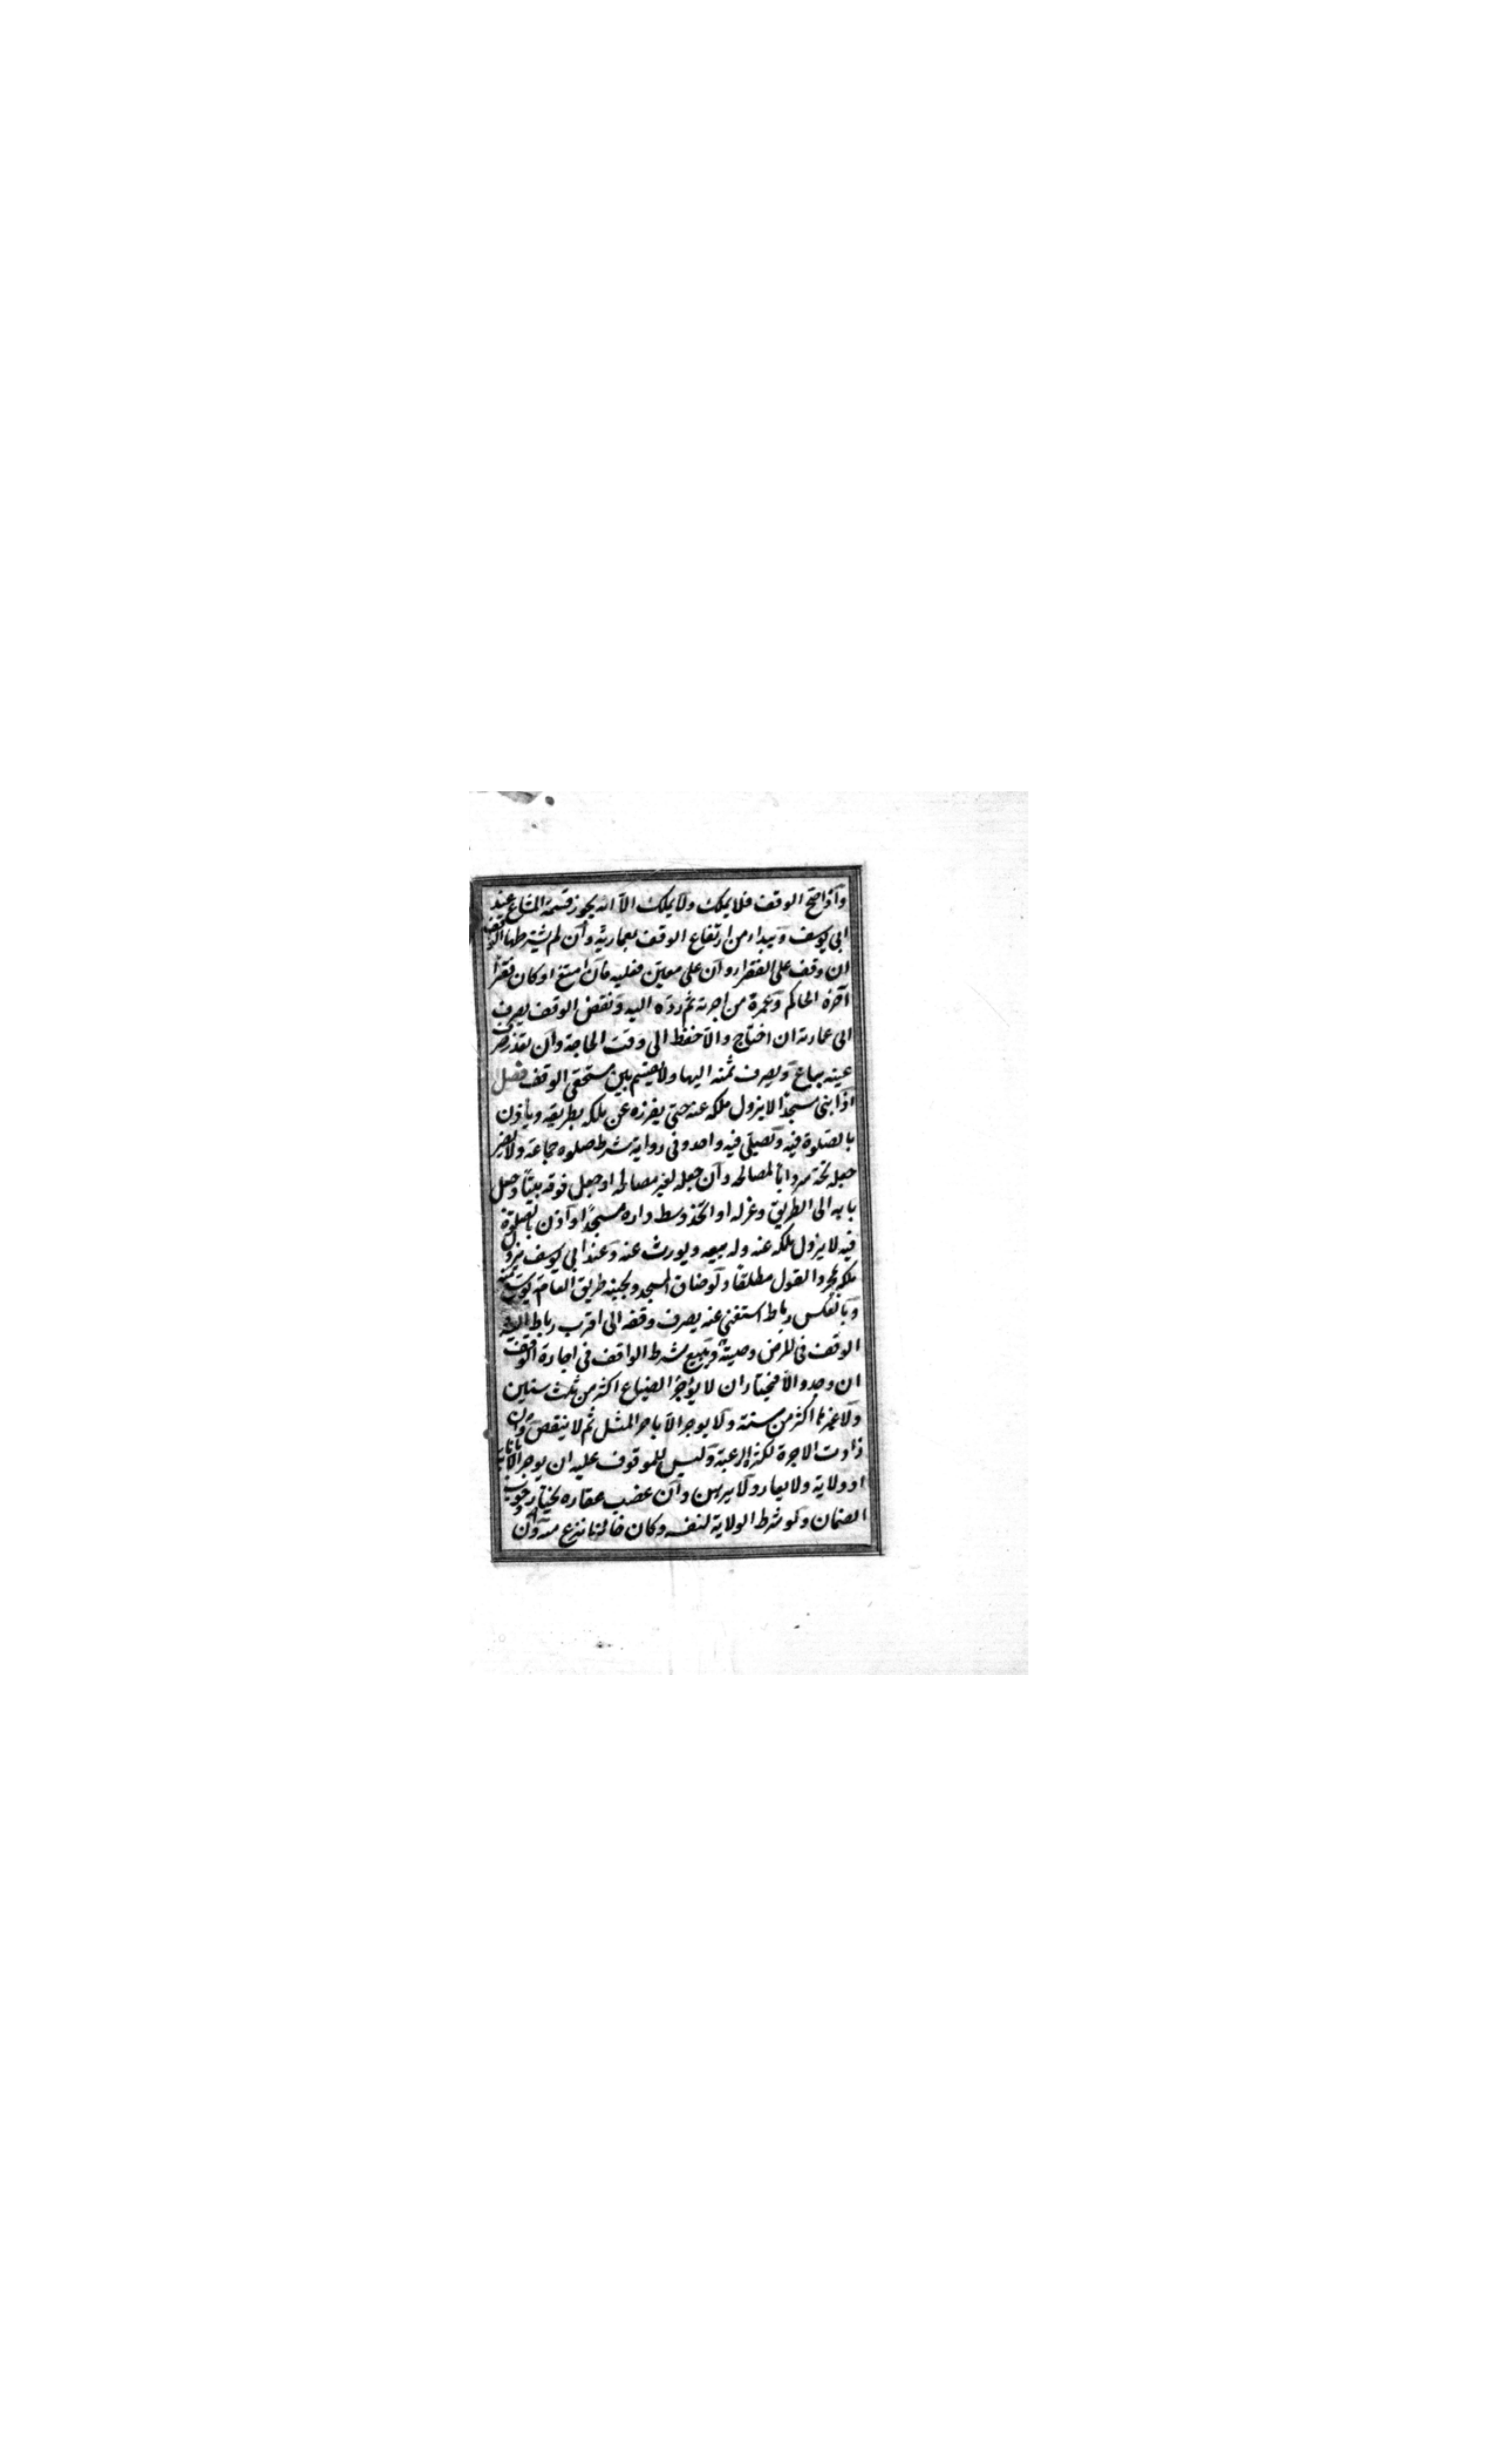 واذا صح الوقف فلا يملك ولا يملك الا انه يجوز قسمة المشاع عند
ابى يوسف ويبداء من ارتفاع الوقف بعمارته وان لم يشترطها الواقف
ان وقف على الفقراء وان على معين فعليه فان امتنع او كان فقيرا
آجره الحاكم وعمره من اجرته ثم رده اليه ونقض الوقف يصرف
الى عمارته ان احتاج والا حفظ الى وقت الحاجة وان تعذر صرف
عينه يباع ويصرف ثمنه اليها ولا يقسم بين مستحقى الوقف فصل
اذا بنى مسجدا لا يزول ملكه عنه حتى يفرزه عن ملكه بطريقه ويأذن
بالصلوة فيه ويصلى فيه واحد وفى رواية شرط صلوة جماعة ولا يضر
جعله تحته سردابا لمصالحه وان جعله لغير مصالحه او جعل فوقه بيتا وجعل
بابه الى الطريق وعزله او اتخذ وسط داره مسجدا واذن بالصلوة
فيه لا يزول ملكه عنه وله بيعه ويورث عنه وعند ابى يوسف يزول
ملكه بمجرد القول مطلقا ولو ضاق المسجد وبجنبه طريق العامة يوسع منه
وبالعكس رباط استغنى عنه يصرف وقفه الى اقرب رباط اليه
الوقف فى المرض وصية ويتبع شرط الواقف فى اجارة الوقف
ان وجد والا فيختار ان لا يؤجر الضياع اكثر من ثلث سنين
ولا غيرها اكثر من سنة ولا يوجر الا باجر المثل ثم لا ينقض وان
زادت الاجرة لكثرة الرغبة وليس للموقوف عليه ان يوجر الا بانابة
او ولاية ولا يعار ولا يرهن وان غصب عقاره يختار وجوب
الضمان ولو شرط الولاية لنفسه وكان خائنا نزع منه وان